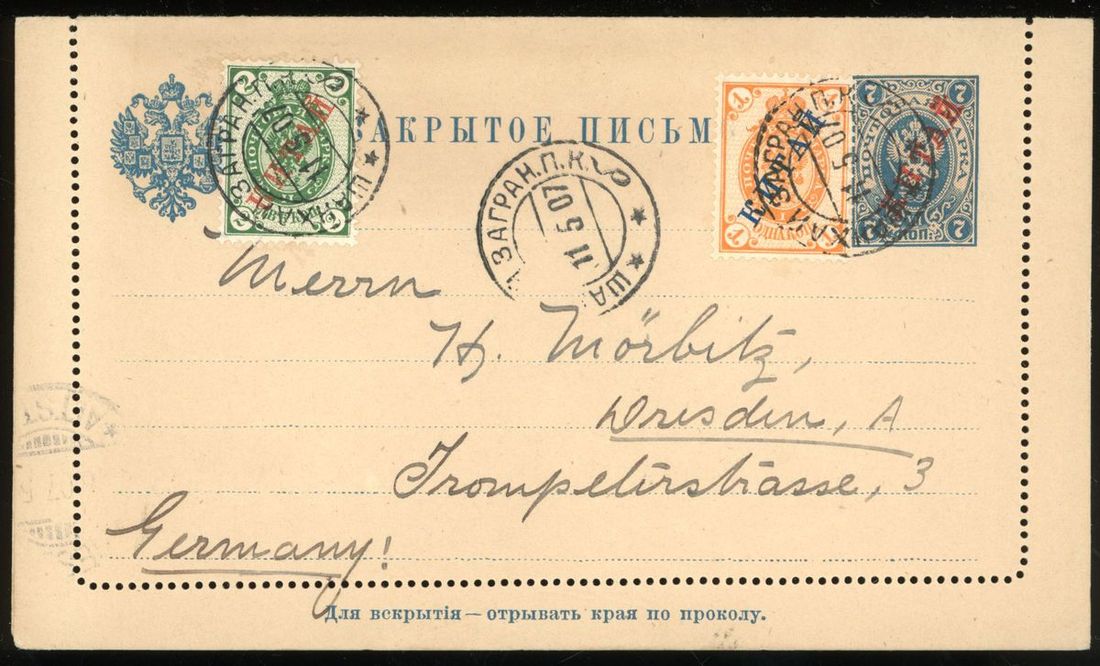 ЗАКРЫТОЕ ПИСЬМ
2
2
КИТАЙ
2
2
1
1
КИТАЙ
1
1
7
7
ПОЧТОВАЯ МАРКА
КИТАЙ
7
КОП.
7
ЗАГРАН. П. К.
11 5 07
ША
Herrn
H. Mörbitz,
Dresden, A
Trompeterstrasse, 3
Germany!
Для вскрытія — отрывать края по проколу.